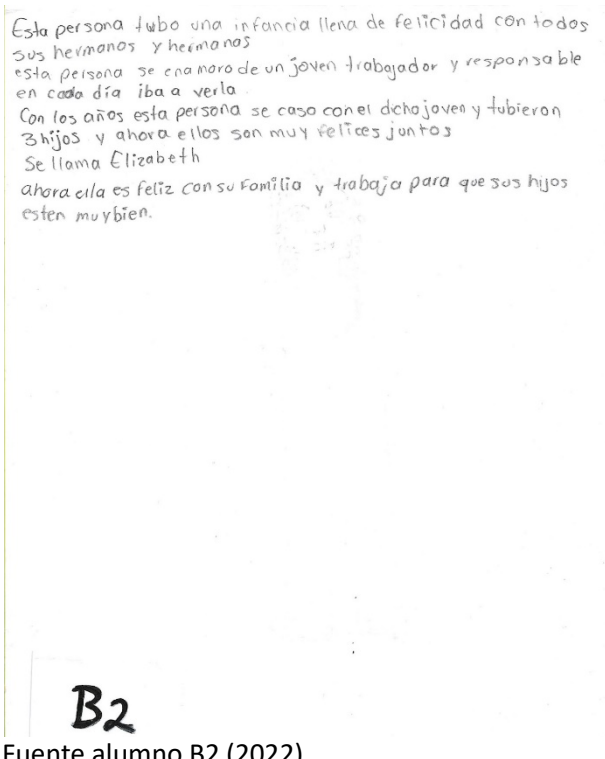 Esta persona tubo una infancia llena de felicidad con todos
sus hermanos y hermanas
esta persona se enamoro de un joven trabajador y responsable
en cada día iba a verla
Con los años esta persona se caso con el dicho joven y tubieron
3 hijos y ahora ellos son muy felices juntos
Se llama Elizabeth
ahora ella es feliz con su Familia y trabaja para que sus hijos
esten muy bien.
B2
Fuente alumno B2 (2022)